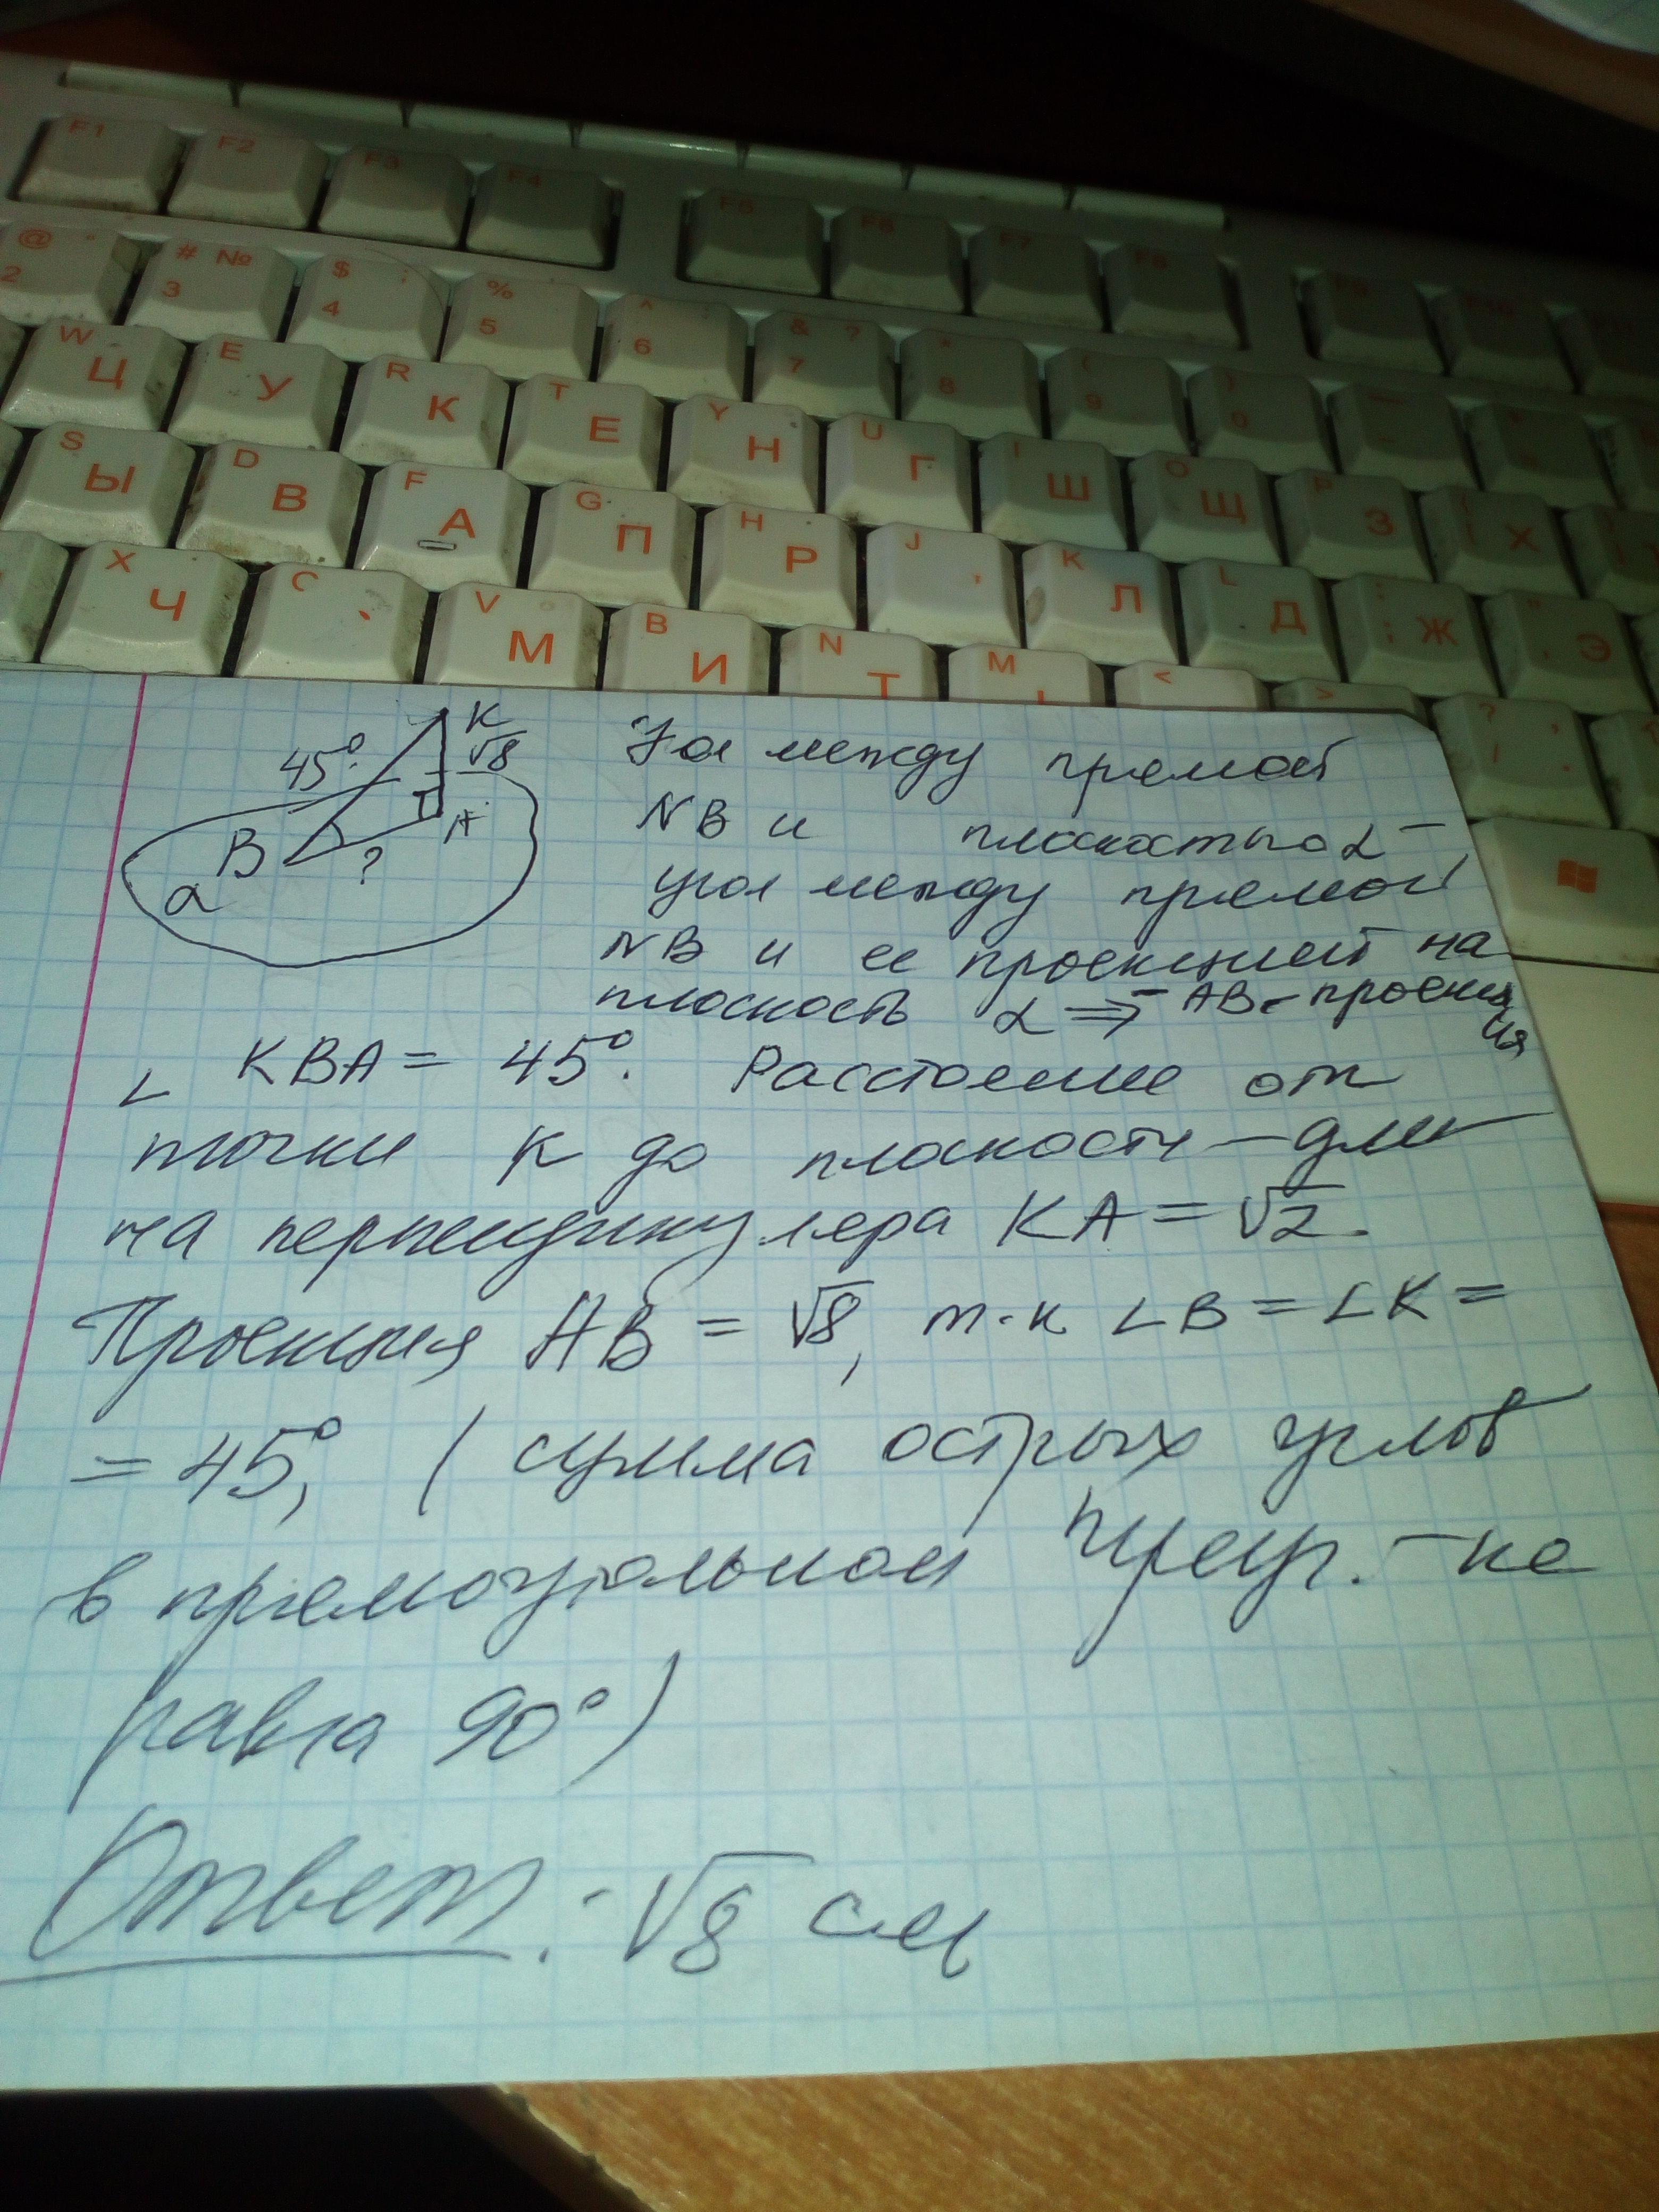 F1 F2 F3 F4 F5 F6 F7 F8
@ " 2 # № 3 $ ; 4 % : 5 ^ 6 & ? 7 * 8 ( 9 ) 0
W Ц E У R К T Е Y Н U Г I Ш O Щ P З { [ Х
S Ы D В F А G П H Р J K Л L Д : ; Ж " ' Э
X Ч C V М B И N Т M Ь < > ? /
K
√8
45°
B
A
?
α
Угол между прямой
KB и плоскостью α –
угол между прямой
KB и ее проекцией на
плоскость α ⇒ AB – проекция
∠ KBA = 45°. Расстояние от
точки K до плоскости – дли
на перпендикуляра KA = √2.
Проекция AB = √8, т.к ∠B = ∠K =
= 45°, (сумма острых углов
в прямоугольном треуг.-ке
равна 90°)
Ответ: √8 см